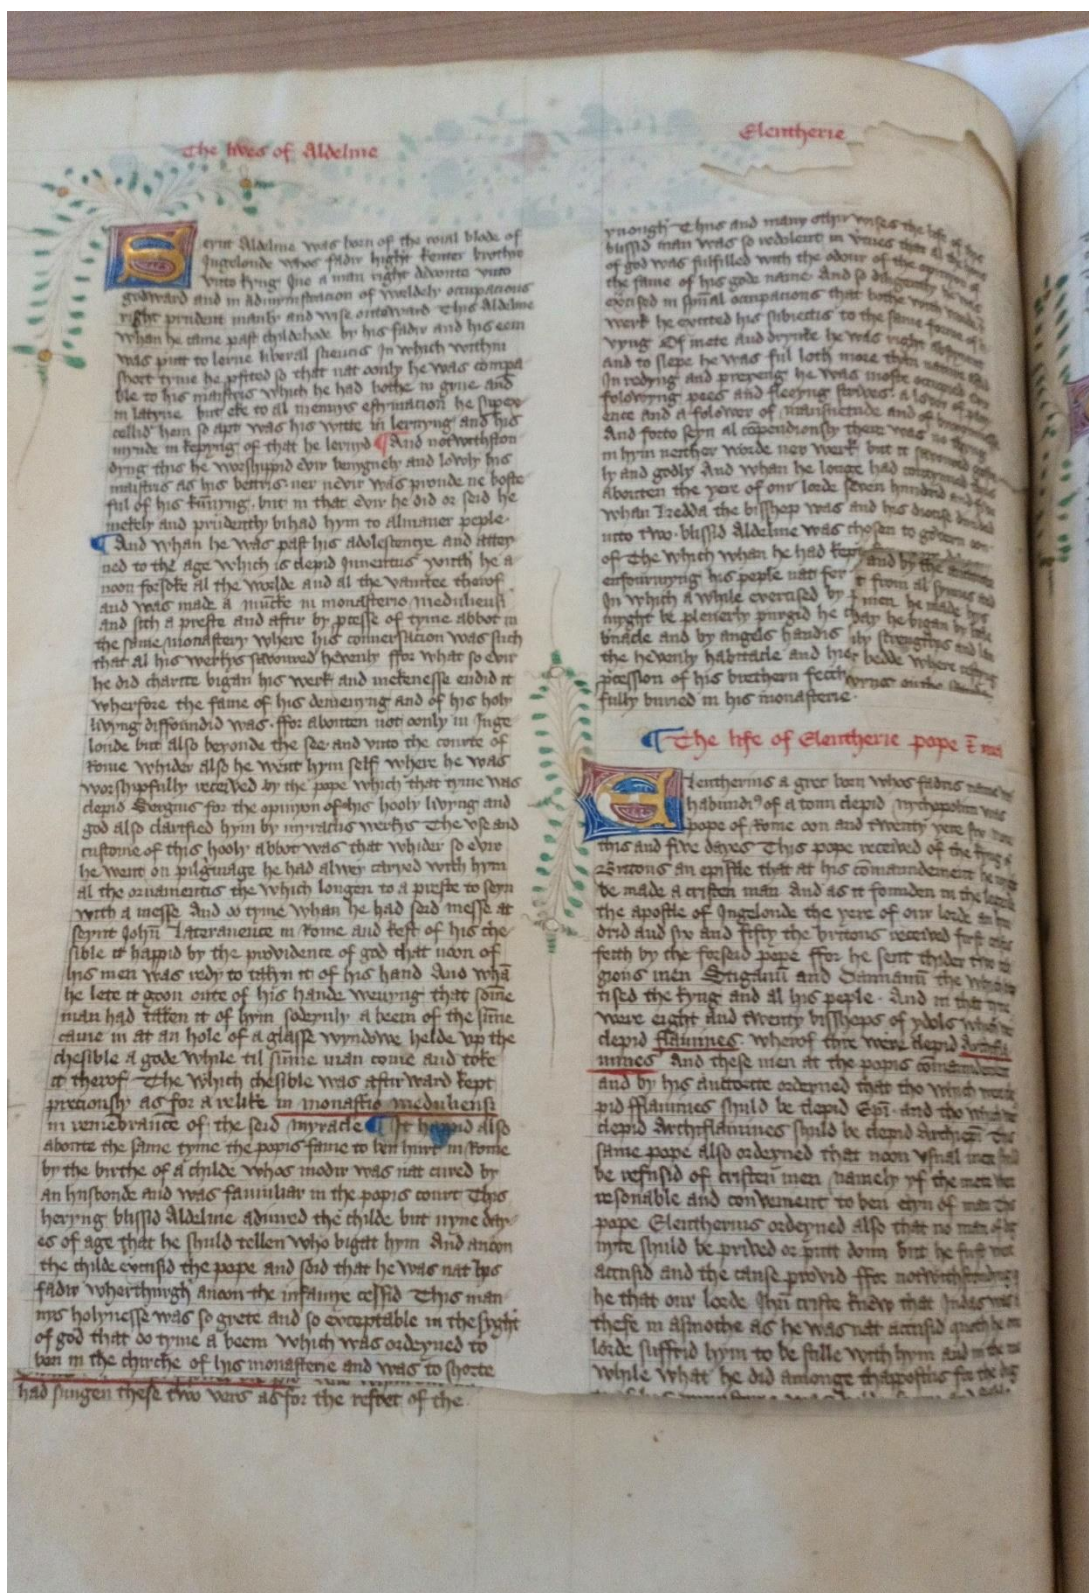 The lives of Aldelme
Eleutherie
Seynt Aldelme was born of the roial blode of
Ingelonde whos fadir hight Kenter brothir
vnto kyng Ine a man right devoute vnto
godward and in administracion of worldely occupacions
right prudent manly and wise outeward This Aldelme
whan he came past childehode by his fadir and his eem
was putt to lerne liberal sciens In which within
short tyme he pfited so that nat oonly he was compa
ble to his maistris which he had bothe in grue and
in latyne but eke to al mennys estymacion he supex
cellid hem so apt was his witte in lernyng and his
mynde in kepyng of that he lernyd And notwithston
dyng this he worshippid evir benygnely and lowly his
maistris as his bettris ner nevir was proude ne boste
ful of his kunyng but in that evir he did or seid he
mekely and prudently bihad hym to almaner peple
And whan he was past his adolescencye and attey
ned to the age which is clepid Juuentus with he a
noon forsoke al the worlde and al the vanitee therof
and was made a munke in monasterio meduliensi
and sith a preste and aftir by pcesse of tyme abbot in
the same monastery where his conuersacion was such
that al his werkys savoured hevenly ffor what so evir
he did charite bigan his werk and mekenesse endid it
wherfore the fame of his demeiyng and of his holy
livyng diffoundid was ffor abouten not oonly in Inge
londe but also beyonde the see and vnto the courte of
Rome whider also he went hym self where he was
worshipfully received by the pope which that tyme was
clepid Sergius for the opinyon of his hooly livyng and
god also clarified hym by myraclis werkys The vse and
custome of this hooly abbot was that whider so evir
he went on pilgrimage he had alwey caryed with hym
al the ornamentis the which longen to a preste to seyn
with a messe And oo tyme whan he had seid messe at
seynt John Lateranence in Rome and kest of his che
sible it happid by the providence of god that noon of
his men was redy to takyn it of his hand And wha
he lete it goon oute of his hande wenyng that some
man had taken it of hym sodeynly a beem of the sune
came in at an hole of a glasse wyndowe helde vp the
chesible a gode while til sume man come and toke
it therof The which chesible was aftirward kept
preciously as for a relike in monastio meduliensi
in remebrance of the seid myracle It happid also
aboute the same tyme the popis fame to ben hurt in Rome
by the birthe of a childe whos modir was nat cured by
an husbonde and was famuliar in the popis court This
heryng blissid Aldelme adiured the childe but nyne day
es of age that he shuld tellen who bigat hym And anoon
the childe excusid the pope and seid that he was nat hys
fadir wherthurgh anoon the infamye cessid This man
nys holynesse was so grete and so exceptable in the syght
of god that oo tyme a beem which was ordeyned to
ben in the chirche of his monasterie and was to shorte
had sungen these two vers as for the reftet of the
ynough Thus and many othir wises the life of the
blissid man was so redolent in vtues that al the hous
of god was fulfilled with the odour of the opinyon of
the fame of his gode name And so diligently he was
excised in spual ocupacions that bothe with worde &
werk he excited his subiectis to the same fourme of li
vyng Of mete and drynke he was right
and to slepe he was ful loth more then nature
In redyng and preyeng he was moste occupied
folowyng pees and fleeyng strives a lover of
ence and a folower of mansuetude and of
And forto seyn al copendiously there was no thyng
in hym neither worde ner werk but it savoured
ly and godly And whan he longe had
abouten the yere of our lorde seven hundrid and five
whan Hedda the bisshop was and his diocise divided
into two blissid Aldelme was chosen to govern oon
of The which whan he had kept and by the
enfourmyng his peple nat for t from al synnes and
In which a while exercised by men he made his
myght be plenerly purgid he day he bigan by litle
bnacle and by angels handis ily strengthis and
the hevenly habitacle and hier bedde where
pcession of his brethern fecth
fully buried in his monasterie
The life of Eleutherie pope
Eleutherius a grec born whos fadris name
habundi of a toun clepid nichopolim was
pope of Rome oon and twenty yere
this and five dayes This pope received of the kyng of
Britons an epistle that at his comaundement he
be made a cristen man And as it founden in the
the apostle of Ingelonde the yere of our lorde an hun
drid and six and fifty the britons received first
feith by the forseid pope ffor he sent thider two
gious men ffuganu and Damianu the which
tised the kyng and al his peple And in that tyme
were eight and twenty bisshops of ydols which
clepid flamines wherof thre were clepid Archifla
mines And these men at the popis comaundement
and by his auctorite ordeyned that tho which were
pid fflamines shuld be clepid Epi and tho which
clepid Archiflamines shuld be clepid Archiepi The
same pope also ordeyned that noon vsual mete shuld
be refusid of cristen men namely yf the mete
resonable and convenient to ben etyn of man The
pope Eleutherius ordeyned also that no man of
nyte shuld be prived or putt doun but he first
accusid and the cause provid ffor notwithstondyng
he that our lorde Jhu criste knew that Iudas was
thefe in asmoche as he was nat accusid
lorde suffrid hym to be stille with hym and in the
while what he did amonge thappostlis for the